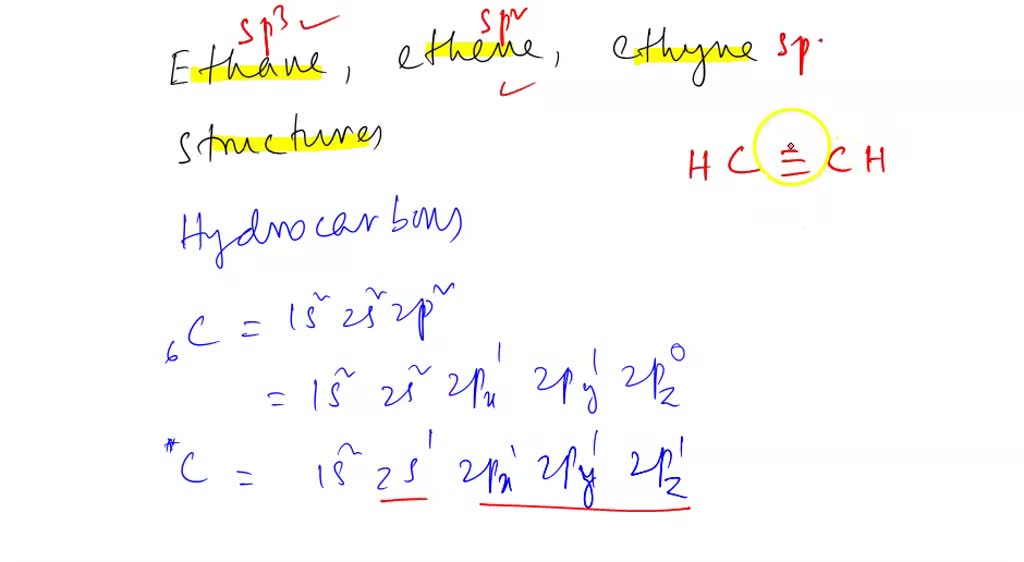 sp³ ✓ sp²
Ethane, ethene, ethyne sp.
✓
structures
H C ≡ C H
Hydrocarbons
₆C = 1s² 2s² 2p²
= 1s² 2s² 2pₓ¹ 2pᵧ¹ 2p_z⁰
*C = 1s² 2s¹ 2pₓ¹ 2pᵧ¹ 2p_z¹